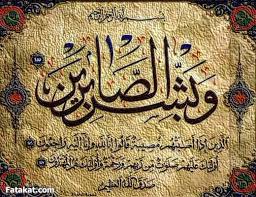 بسم الله الرحمن الرحيم
وبشر الصابرين
الذين إذا أصابتهم مصيبة قالوا إنا لله وإنا إليه راجعون
أولئك عليهم صلوات من ربهم ورحمة وأولئك هم المهتدون
صدق الله العظيم
Fatakat.com